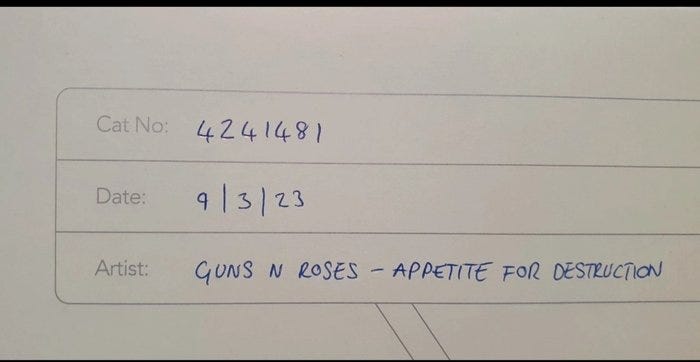 Cat No: 4241481
Date: 9/3/23
Artist: GUNS N ROSES - APPETITE FOR DESTRUCTION